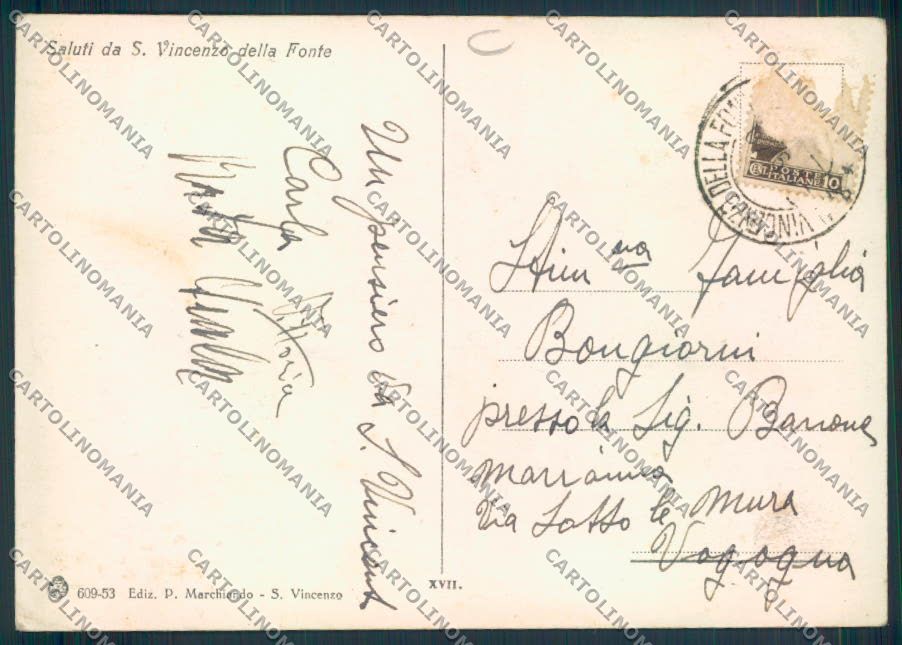 Saluti da S. Vincenzo della Fonte
Un pensiero da S. Vincent
Carla
Vittoria
POSTE
ITALIANE 10
DELLA FON
VINCENZO
Stim ma Famiglia
Bongiorni
presso la Sig. Barrona
Marianna
Via Sotto le Mura
Vogogna
XVII.
609-53 Ediz. P. Marchiando - S. Vincenzo
CARTOLINOMANIA